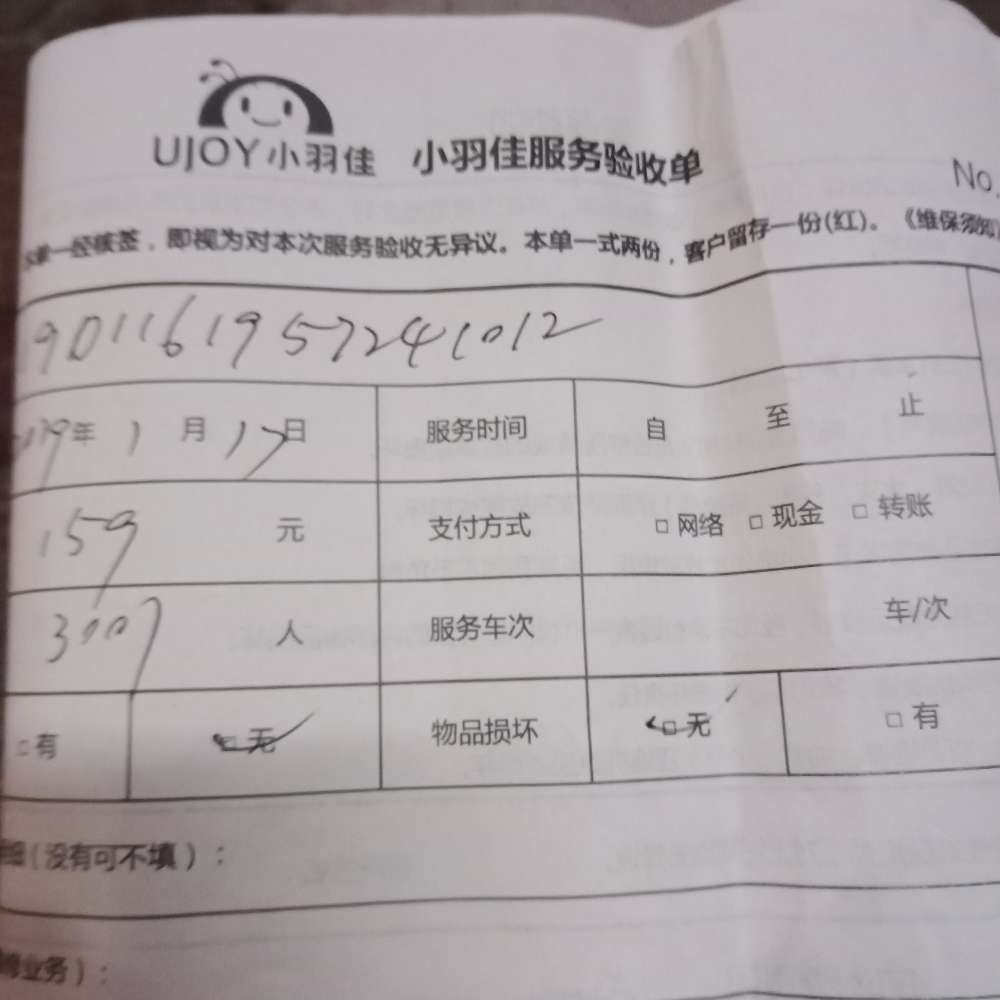 UJOY小羽佳 小羽佳服务验收单 No.
本单一经核签，即视为对本次服务验收无异议。本单一式两份，客户留存一份(红)。《维保须知
1901161957241012
2019年 1 月 17日 服务时间 自 至 止
159 元 支付方式 □ 网络 □ 现金 □ 转账
3007 人 服务车次 车/次
□ 有 □ 无 物品损坏 □ 无 □ 有
细(没有可不填)：
业务)：